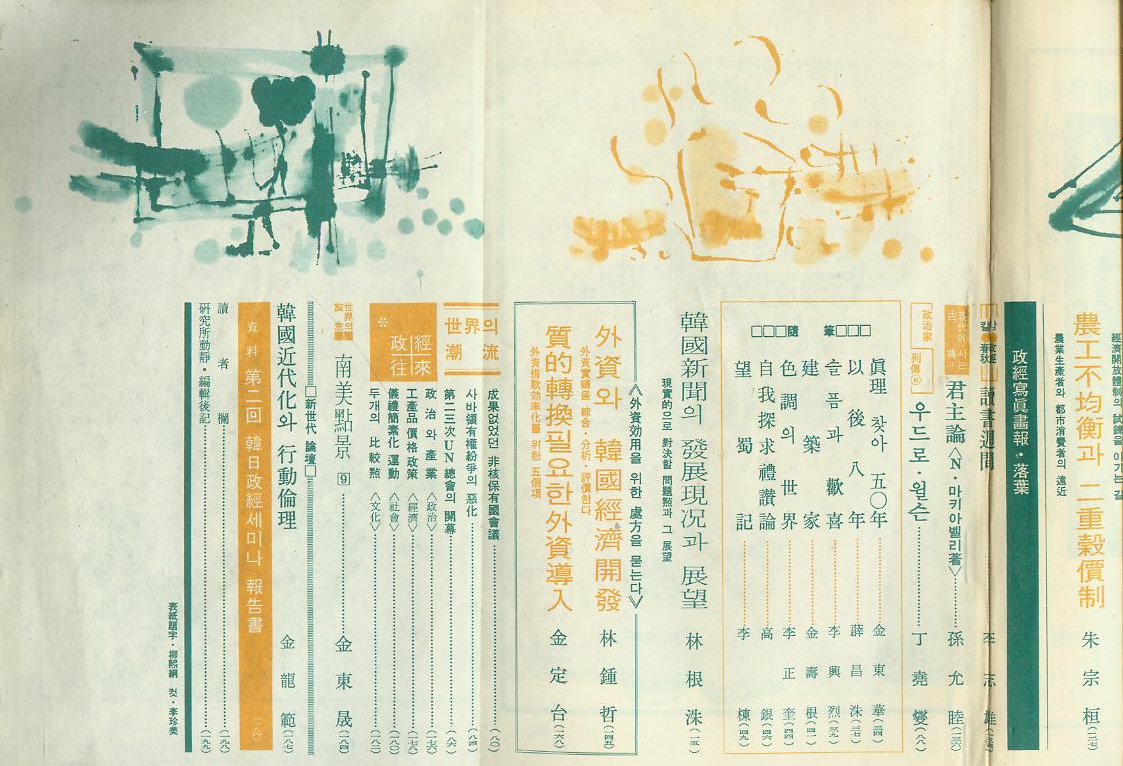 經濟開放體制의 試鍊을 이기는 길
農工不均衡과 二重穀價制 朱宗桓
農業生產者와 都市消費者의 遠近
政經寫眞畫報・落葉
讀書週間 李志雄
古典
君主論〈N・마키아벨리著〉 孫允睦
政治家
列傳⑩
우드로・윌슨 丁堯燮(八八)
隨筆
眞理 찾아 五〇年 金東華(三四)
以後八年 薛昌洙(三七)
슬픔과 歡喜 李興烈(三九)
建築家 金壽根(四一)
色調의 世界 李正奎(四四)
自我探求禮讃論 高銀(四六)
望蜀記 李棟(四九)
韓國新聞의 發展現況과 展望 林根洙
現實的으로 對決할 問題點과 그 展望
〈外資効用을 위한 處方을 묻는다〉
外資와 韓國經濟開發 林鍾哲(一四五)
外資實績을 綜合・分析・評價한다
質的轉換필요한外資導入 金定台
外資借款効率化를 위한 五個項
世界의 潮流
成果없었던 非核保有國會議
사바領有權紛爭의 惡化
第二三次UN總會의 開幕
政經往來
政治와 產業〈政治〉
工產品價格政策〈經濟〉
儀禮簡素化運動〈社會〉
두개의 比較點〈文化〉
世界의
南美點景 ⑨ 金東晟
□新世代 論壇□
韓國近代化와 行動倫理 金龍範
資料 第二回 韓日政經세미나 報告書
讀者欄
硏究所動靜・編輯後記
表紙題字・柳熙綱 컷・李珍美